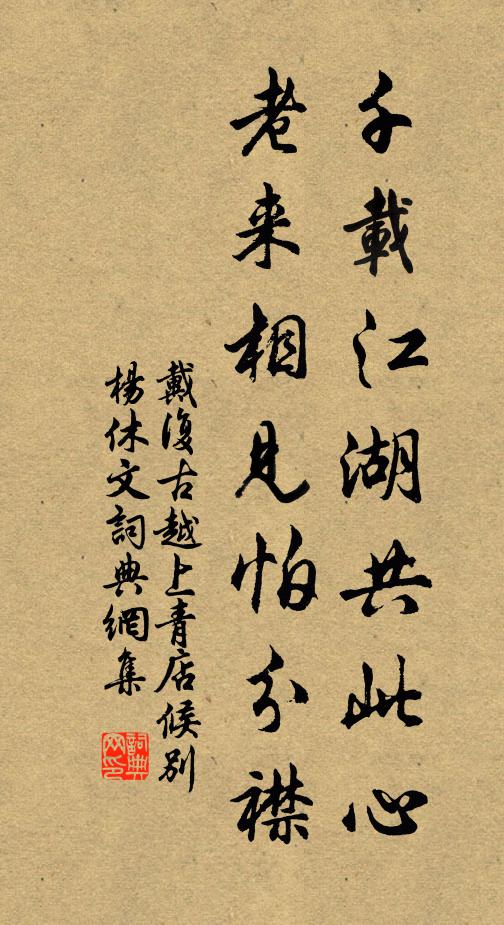 千載江湖共此心
老来相見怕分襟
戴復古越上青店候別
楊休文詞典網集
詞典网印